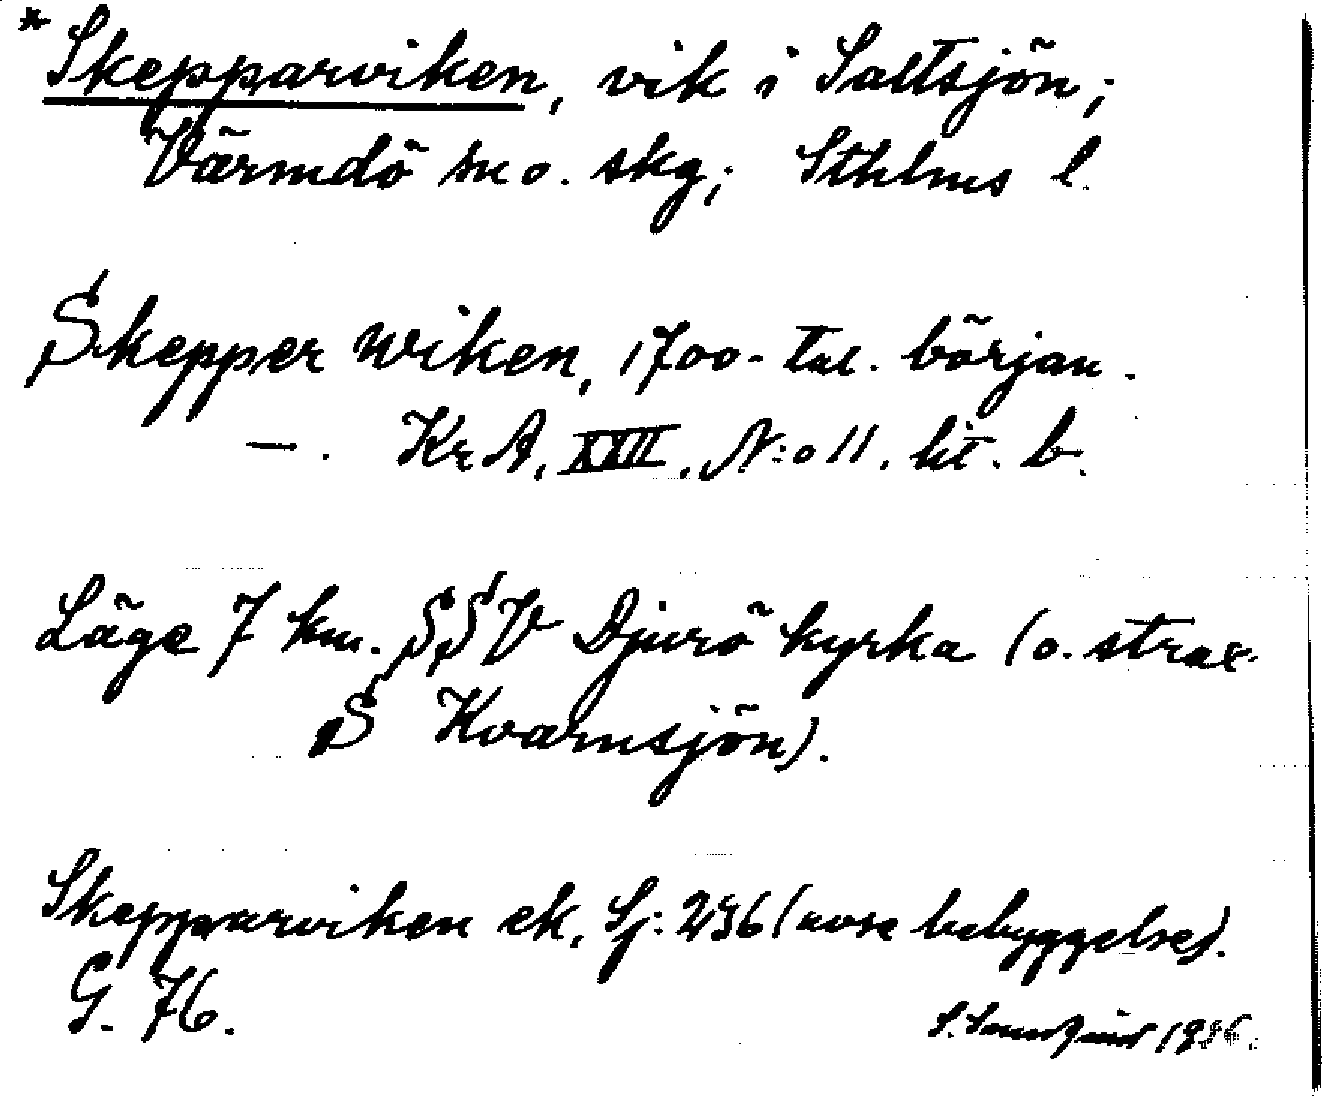 * Skepparviken, vik i Saltsjön;
Värmdö sn o. skg; Sthlms l.
Skepper Wiken, 1700-tal. början.
—. Kr A, XXII. N:o 11. lit. b.
Läge 7 km. SSV Djurö kyrka (o. strax
S Kvarnsjön).
Skepparviken ek, Sj: 236 (avse bebyggelse).
G. 76.
S. 1936.